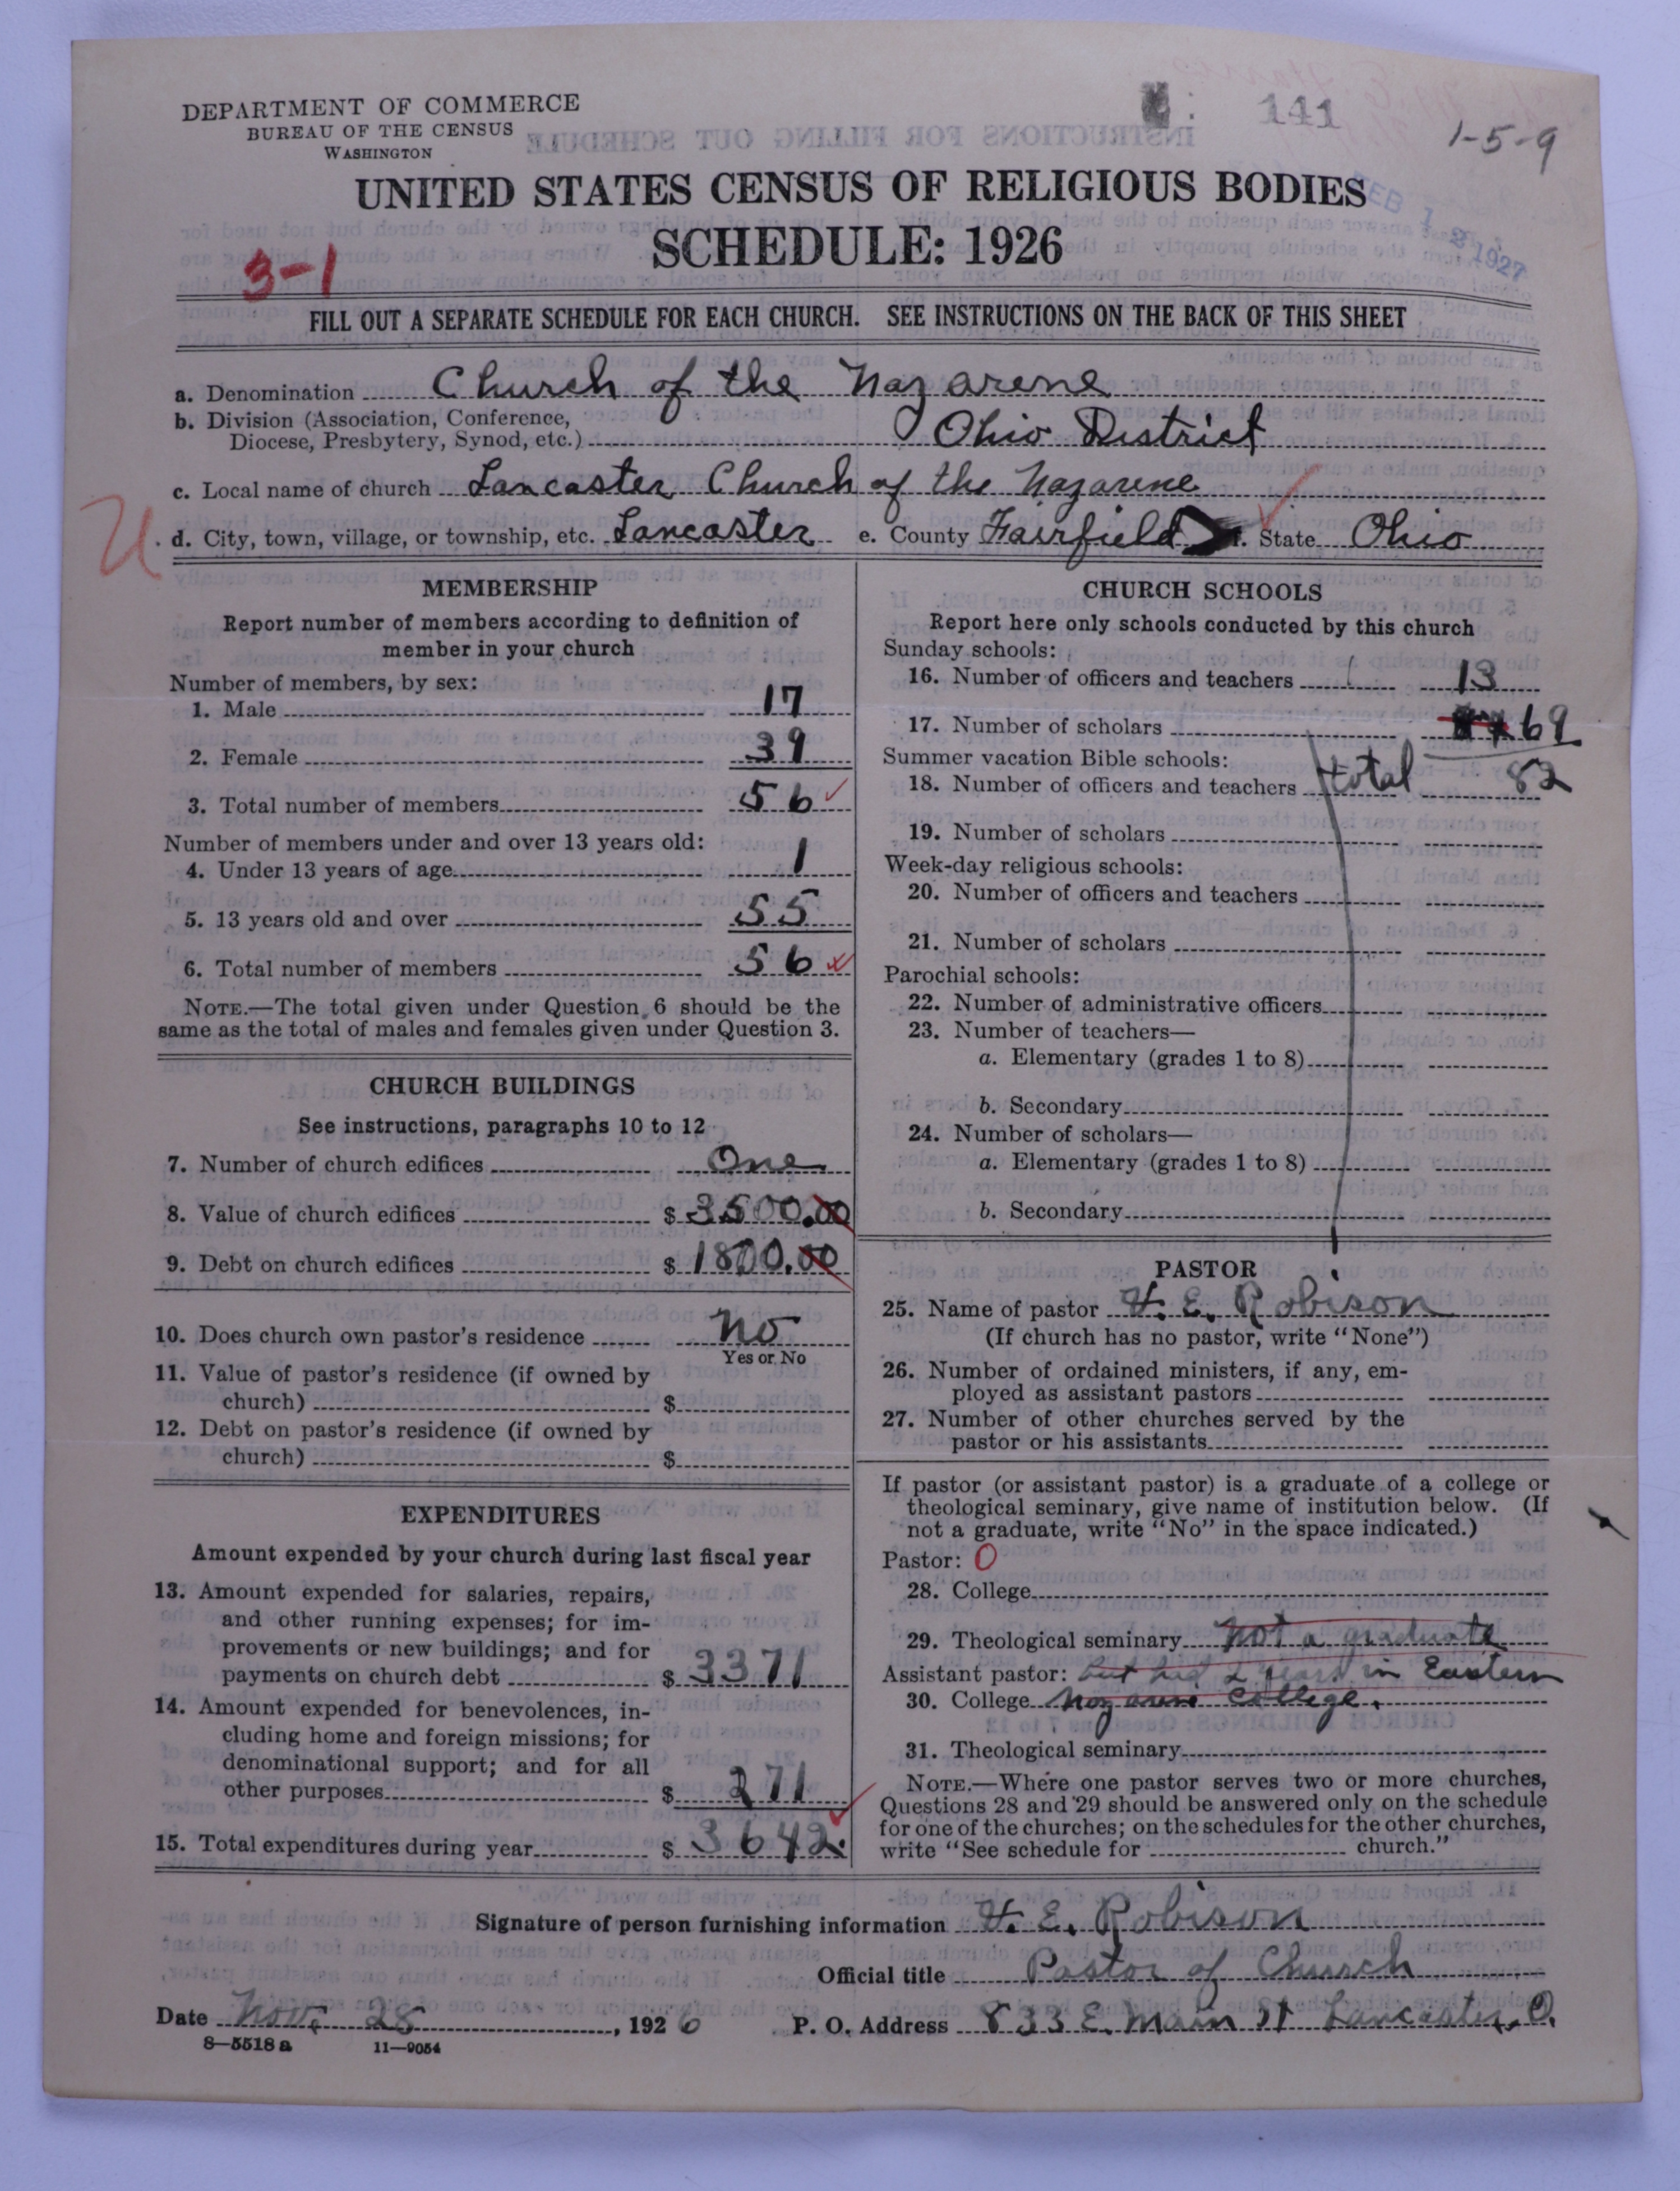 DEPARTMENT OF COMMERCE
BUREAU OF THE CENSUS
WASHINGTON
141
1-5-9
UNITED STATES CENSUS OF RELIGIOUS BODIES
FEB 12 1927
SCHEDULE: 1926
3-1
FILL OUT A SEPARATE SCHEDULE FOR EACH CHURCH. SEE INSTRUCTIONS ON THE BACK OF THIS SHEET
a. Denomination Church of the Nazarene
b. Division (Association, Conference,
Diocese, Presbytery, Synod, etc.) Ohio District
c. Local name of church Lancaster Church of the Nazarene
U
d. City, town, village, or township, etc. Lancaster e. County Fairfield f. State Ohio
MEMBERSHIP
Report number of members according to definition of
member in your church
Number of members, by sex:
1. Male 17
2. Female 39
3. Total number of members 56
Number of members under and over 13 years old:
4. Under 13 years of age 1
5. 13 years old and over 55
6. Total number of members 56
NOTE.—The total given under Question 6 should be the
same as the total of males and females given under Question 3.
CHURCH BUILDINGS
See instructions, paragraphs 10 to 12
7. Number of church edifices One
8. Value of church edifices $ 3500.00
9. Debt on church edifices $ 1800.00
10. Does church own pastor's residence No
Yes or No
11. Value of pastor's residence (if owned by
church) $
12. Debt on pastor's residence (if owned by
church) $
EXPENDITURES
Amount expended by your church during last fiscal year
13. Amount expended for salaries, repairs,
and other running expenses; for im-
provements or new buildings; and for
payments on church debt $ 3371
14. Amount expended for benevolences, in-
cluding home and foreign missions; for
denominational support; and for all
other purposes $ 271
15. Total expenditures during year $ 3642.
CHURCH SCHOOLS
Report here only schools conducted by this church
Sunday schools:
16. Number of officers and teachers 13
17. Number of scholars 69
Summer vacation Bible schools:
18. Number of officers and teachers total 82
19. Number of scholars
Week-day religious schools:
20. Number of officers and teachers
21. Number of scholars
Parochial schools:
22. Number of administrative officers
23. Number of teachers—
a. Elementary (grades 1 to 8)
b. Secondary
24. Number of scholars—
a. Elementary (grades 1 to 8)
b. Secondary
PASTOR
25. Name of pastor H. E. Robison
(If church has no pastor, write "None")
26. Number of ordained ministers, if any, em-
ployed as assistant pastors
27. Number of other churches served by the
pastor or his assistants
If pastor (or assistant pastor) is a graduate of a college or
theological seminary, give name of institution below. (If
not a graduate, write "No" in the space indicated.)
Pastor: O
28. College
29. Theological seminary Not a graduate
Assistant pastor: but had 2 years in Eastern
30. College Nazarene College.
31. Theological seminary
NOTE.—Where one pastor serves two or more churches,
Questions 28 and 29 should be answered only on the schedule
for one of the churches; on the schedules for the other churches,
write "See schedule for church."
Signature of person furnishing information H. E. Robison
Official title Pastor of Church
Date Nov. 28, 1926 P. O. Address 833 E. Main St Lancaster, O.
8—5518 a 11—9054